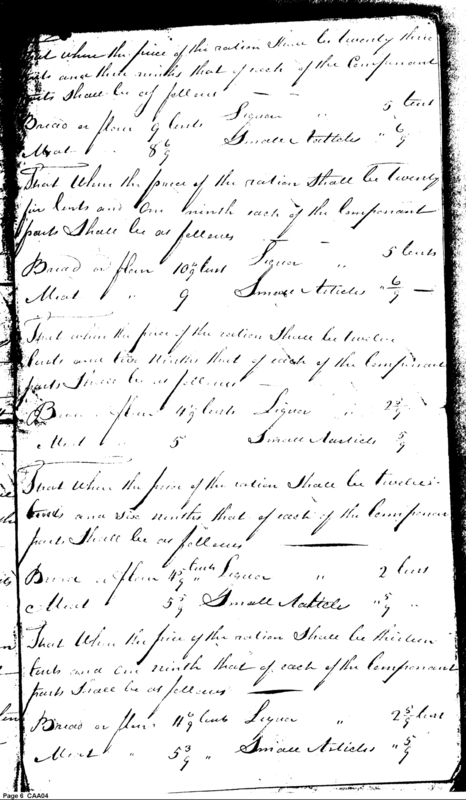 that when the price of the ration shall be twenty three
cents and three ninths that of each of the Componant
parts Shall be as follows
Bread or flour 9 Cents Liquor " 5 Cent
Meat " 8 6/9 Small Articles " 6/9
That When the price of the ration Shall be Twenty
five Cents and One ninth each of the Componant
parts Shall be as follows
Bread or flour Cents Liquor " 5 Cents
Meat " 9 Small Articles " 6/9
That when the price of the ration Shall be twelve
Cents and two Ninths that of each of the Componant
parts Shall be as follows
flour Cents Liquor " 2
Meat " 5 Small Aarticles 5/9
That When the price of the ration Shall be twelve
Cents and six ninths that of each of the Componan
parts Shall be as follows
Bread or flour 4 5/9 Cents Liquor " 2 Cent
Meat 5 5/9 Small Aarticle " 5/9 "
That When the price of the ration Shall be thirteen
Cents and One ninth that of each of the Componant
parts Shall be as follows
Bread or flour Cents Liquor " 2 5/9 Cent
Meat " 5 3/9 " Small Articles " 5/9
Page 6 CAA04